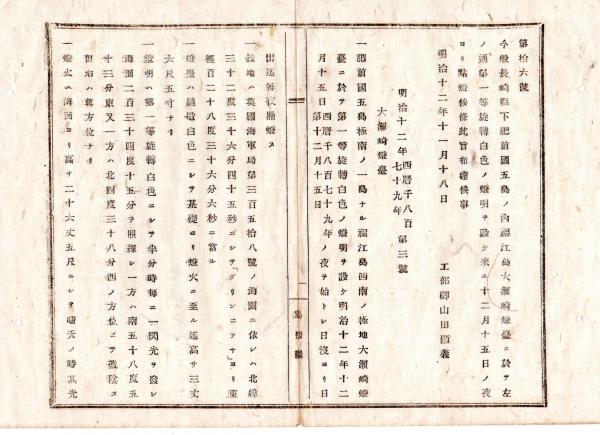 第拾六號
今般長崎縣下肥前國五島ノ內福江島大瀬崎燈臺ニ於テ左
ノ通第一等旋轉白色ノ燈明ヲ設ケ來ル十二月十五日ノ夜
ヨリ點燈候條此旨布達候事
明治十二年十一月十八日
工部卿山田顯義
明治十二年西曆千八百七十九年第三號
大瀬崎燈臺
一肥前國五島極南ノ一島ナル福江島西南ノ極地大瀬崎燈
臺ニ於テ第一等旋轉白色ノ燈明ヲ設ケ明治十二年十二
月十五日西曆千八百七十九年第十二月十五日ノ夜ヲ始トシ日沒ヨリ日
出迄每夜點燈ス
一該地ハ英國海軍局第三百五拾八號ノ海圖ニ依レハ北緯
三十二度三十六分四十五秒ニシテ「グリンニツチ」ヨリ東
經百二十八度三十六分六秒ニ當ル
一燈臺ハ鐵造白色ニシテ基礎ヨリ燈火ニ至ル迄高サ三丈
六尺五寸ナリ
一燈明ハ第一等旋轉白色ニシテ半分時每ニ一閃光ヲ發シ
海面二百三十四度十五分ヲ照輝シ一方ハ南五十八度五
十三分東又一方ハ北四度三十八分西ノ方位ニテ蔽陰ス
一燈火ハ海面ヨリ高サ二十六丈五尺ニシテ晴天ノ時其光